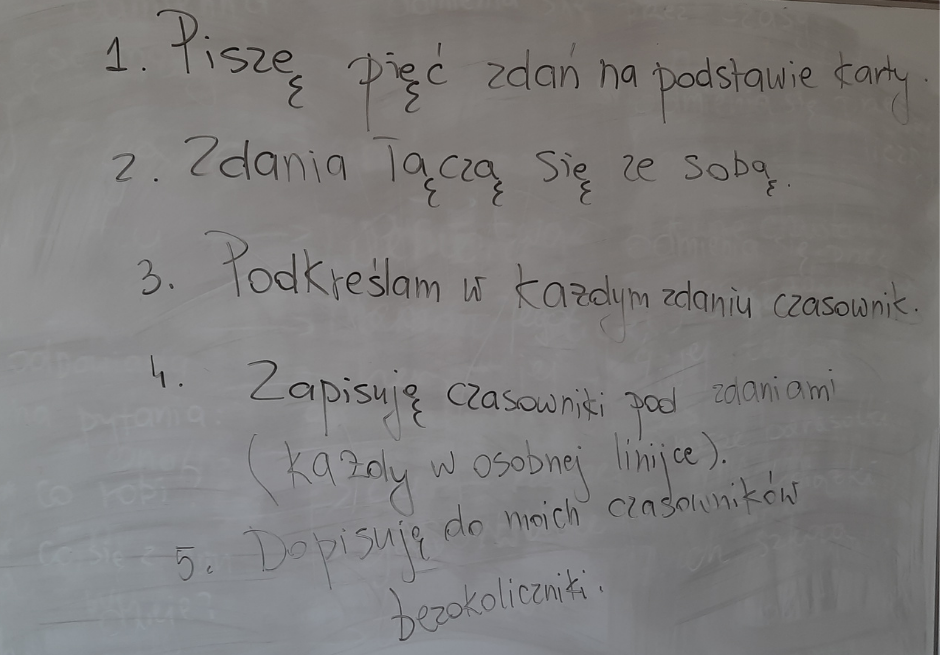 1. Piszę pięć zdań na podstawie karty.
2. Zdania łączą się ze sobą.
3. Podkreślam w każdym zdaniu czasownik.
4. Zapisuję czasowniki pod zdaniami
(każdy w osobnej linijce).
5. Dopisuję do moich czasowników
bezokoliczniki.